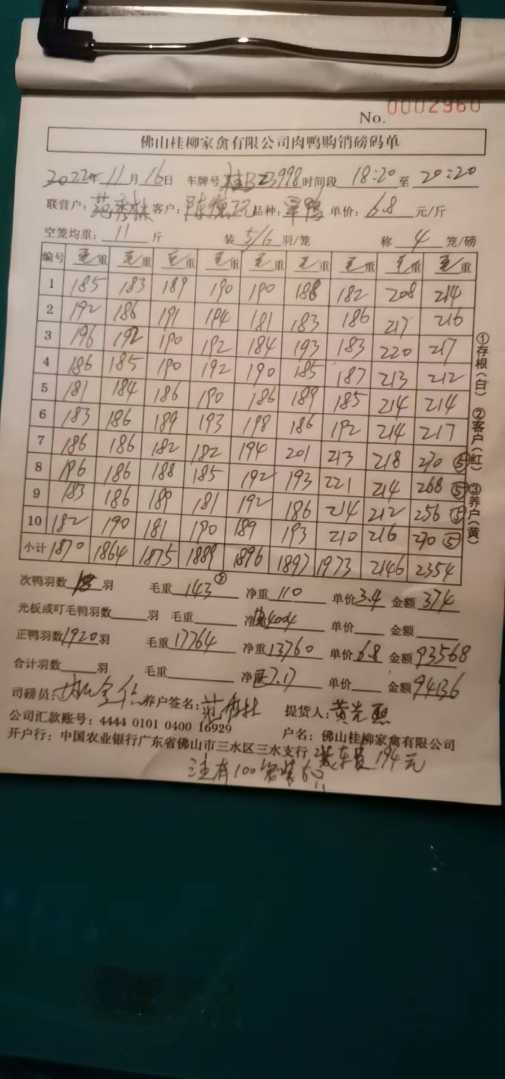 No. 0002960
佛山桂柳家禽有限公司肉鸭购销磅码单
2022年 11月 16日 车牌号 桂B 23998 时间段 18:20 至 20:20
联营户: 客户: 品种: 单价: 6.8 元/斤
空笼均重: 11 斤 装 5/6 羽/笼 称 4 笼/磅
编号 毛重 毛重 毛重 毛重 毛重 毛重 毛重 毛重 毛重
1 185 183 189 190 190 188 182 208 214
2 192 186 191 194 181 183 186 217 216
3 196 192 190 192 184 193 183 220 217
4 186 185 190 192 190 185 187 213 212
5 181 184 186 190 186 189 185 214 214
6 183 186 189 193 198 186 192 214 217
7 186 186 182 182 194 201 213 218 270 ⑤
8 196 186 188 185 192 193 221 214 268 ⑤
9 183 186 189 181 192 186 214 212 256 ⑤
10 182 190 181 190 189 193 210 216 270 ⑤
小计 1870 1864 1875 1889 1896 1897 1973 2146 2354
①存根(白) ②客户(红) ③养户(黄)
次鸭羽数 羽 毛重 143 ③ 净重 110 单价 3.4 金额 374
光板或叮毛鸭羽数 羽 毛重 净 4004 单价 金额
正鸭羽数 1920 羽 毛重 17764 净重 13760 单价 6.8 金额 93568
合计羽数 羽 毛重 净 7.17 单价 金额 94136
司磅员: 养户签名: 提货人: 黄光熙
公司汇款账号: 4444 0101 0400 16929 户名: 佛山桂柳家禽有限公司
开户行: 中国农业银行广东省佛山市三水区三水支行 装车费 194元
注有100笼装6只